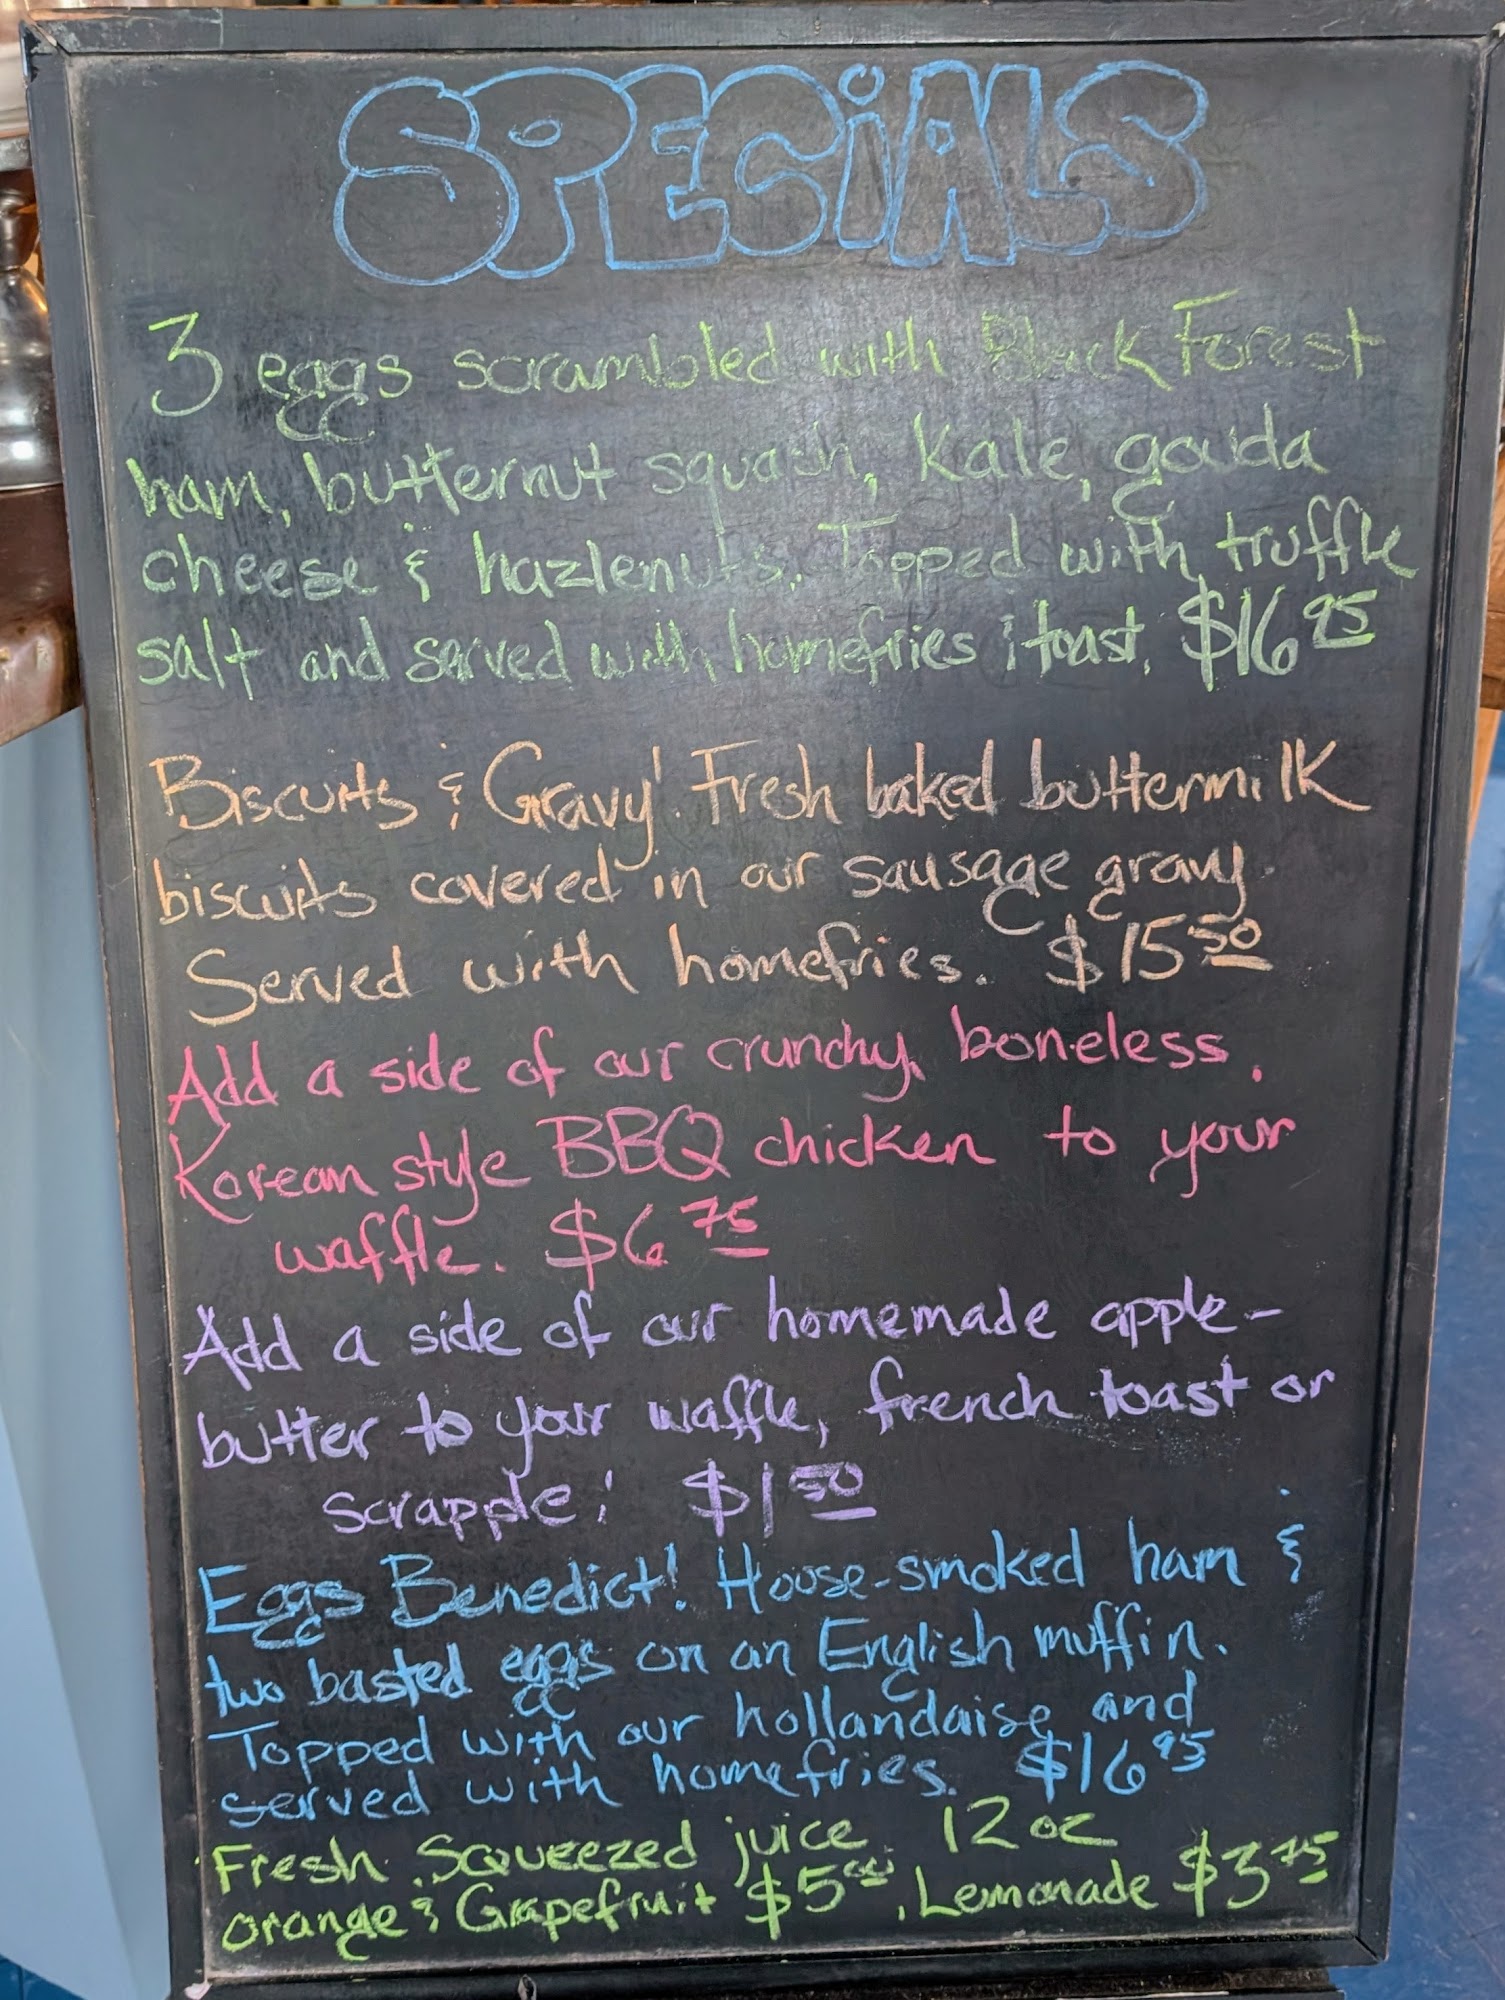 SPECiALS
3 eggs scrambled with Black Forest
ham, butternut squash, kale, gouda
cheese & hazlenuts. Topped with truffle
salt and served with homefries & toast. $16 95
Biscuits & Gravy! Fresh baked buttermilk
biscuits covered in our sausage gravy.
Served with homefries. $15 50
Add a side of our crunchy, boneless,
Korean style BBQ chicken to your
waffle. $6 75
Add a side of our homemade apple-
butter to your waffle, french toast or
scrapple! $1 50
Eggs Benedict! House-smoked ham &
two basted eggs on an English muffin.
Topped with our hollandaise and
served with homefries. $16 95
Fresh Squeezed juice 12 oz
orange & Grapefruit $5 00, Lemonade $3 75